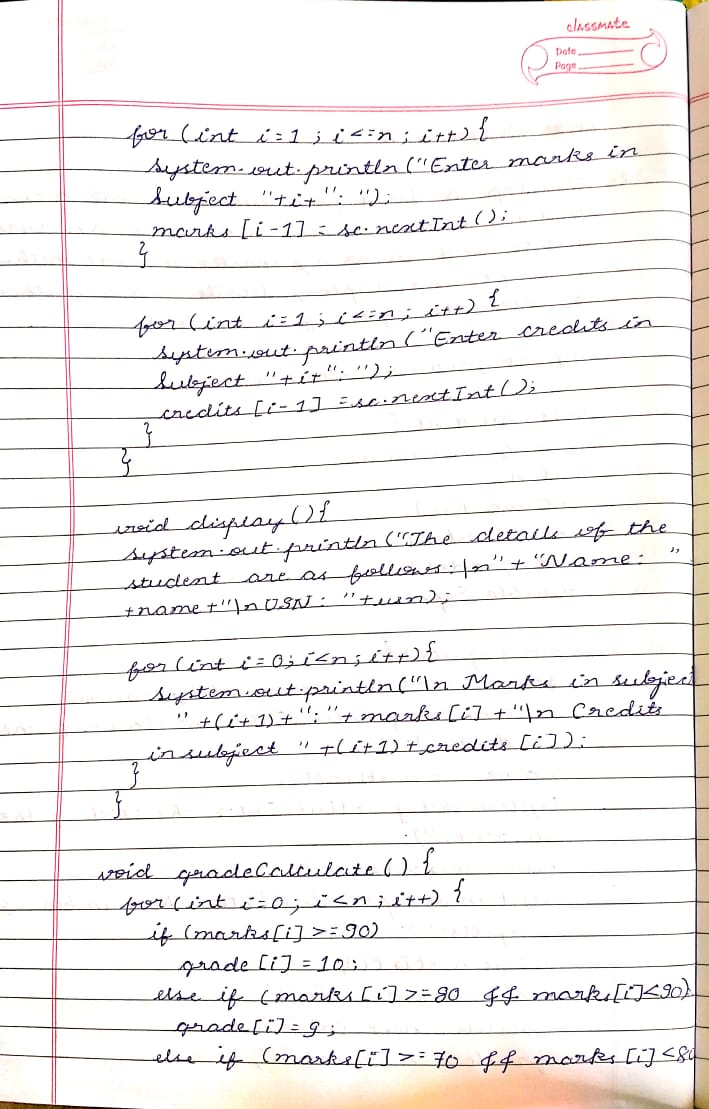 classmate
Date
Page
for (int i=1 ; i<=n ; i++) {
system.out.println ("Enter marks in
Subject "+i+": ");
marks [i-1] = sc.nextInt ();
}
for (int i=1 ; i<=n ; i++) {
system.out.println ("Enter credits in
Subject "+i+": ");
credits [i-1] = sc.nextInt ();
}
}
void display () {
system.out.println ("The details of the
student are as follows: \n" + "Name: "
+name+"\n USN: "+usn);
for (int i=0; i<n; i++) {
system.out.println ("\n Marks in subject
" +(i+1)+ ":"+ marks[i] +"\n Credits
in subject " +(i+1)+credits [i]);
}
}
void gradeCalculate () {
for (int i=0; i<n ; i++) {
if (marks[i] >=90)
grade [i] =10;
else if (marks [i] >=80 && marks[i]<90)
grade[i]= 9;
else if (marks[i] >= 70 && marks [i] <80